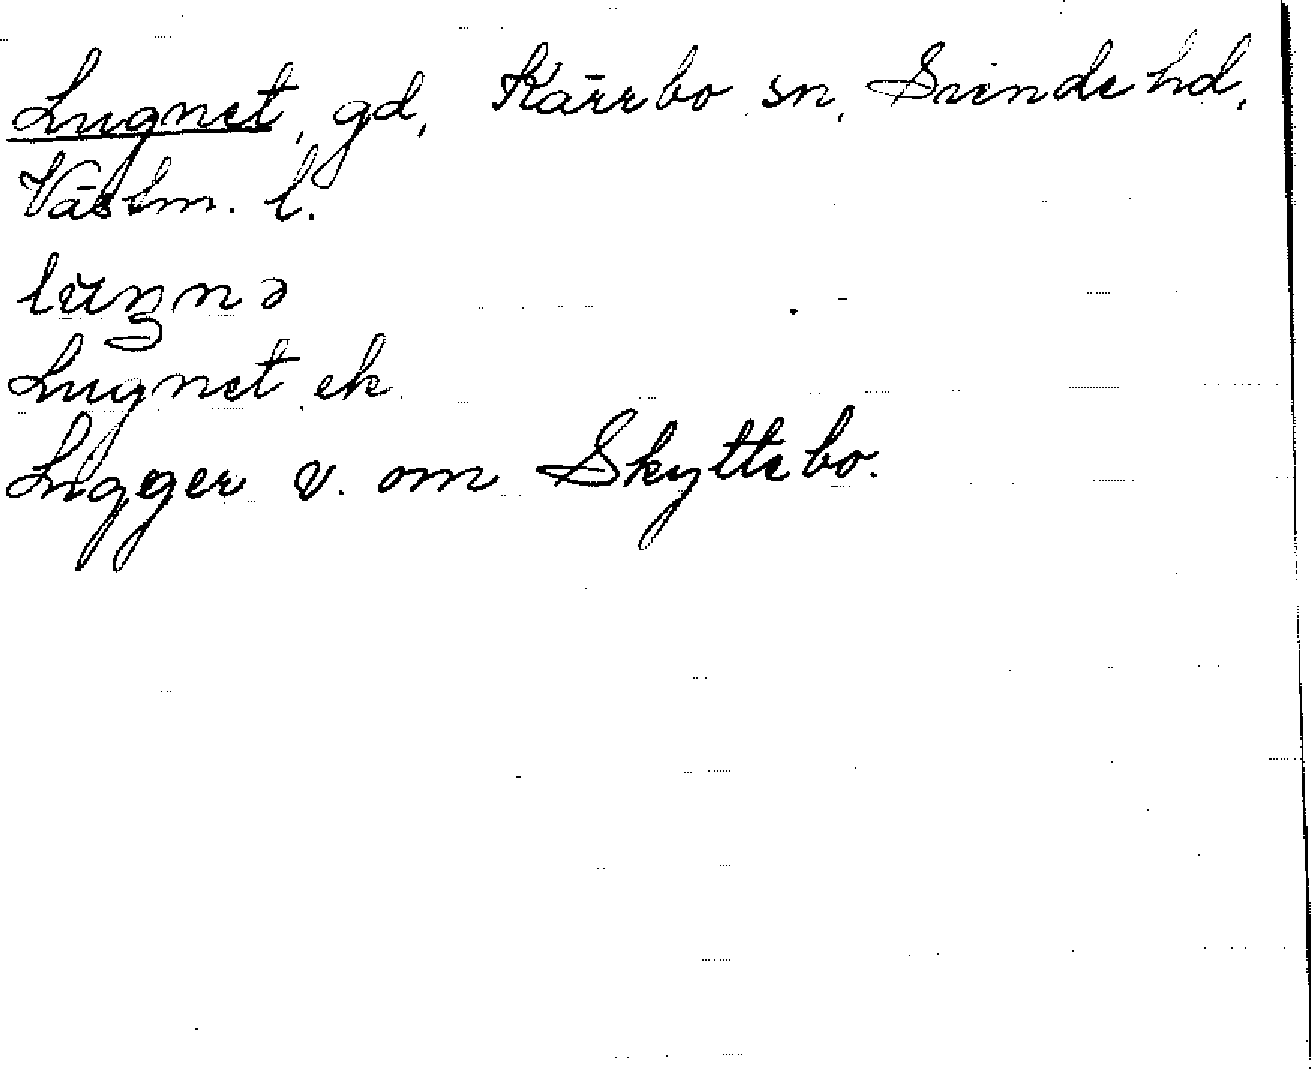 Lugnet, gd, Kärrbo sn, Siende hd,
Västm. l.
Lugnet ek
Ligger v. om Skyttebo.